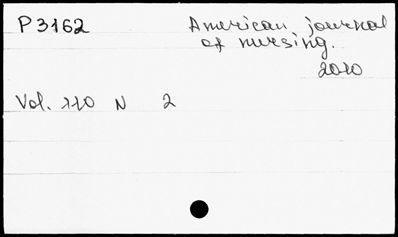 P3162
American journal
of nursing.
2010
Vol. 110 N 2